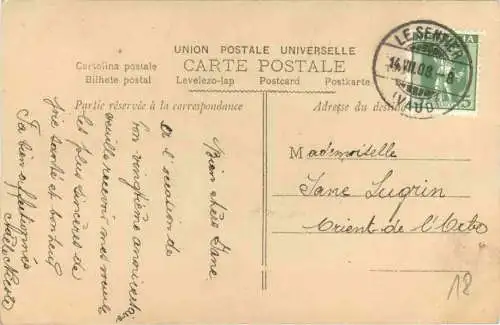 UNION POSTALE UNIVERSELLE
CARTE POSTALE
Cartolina postale
Bilhete postal
Levelezo-lap Postcard Postkarte
Partie réservée à la correspondance
Adresse du
LE SENTIER
14.VII.08
(VAUD)
Bien chère Jane
A l'occasion de
ton vingtième anniversaire
veuille recevoir mes meil
les plus sincères de
santé et bonheur
Ta bien affectionnée
Mademoiselle
Jane Lugrin
Orient de l'Orbe
18